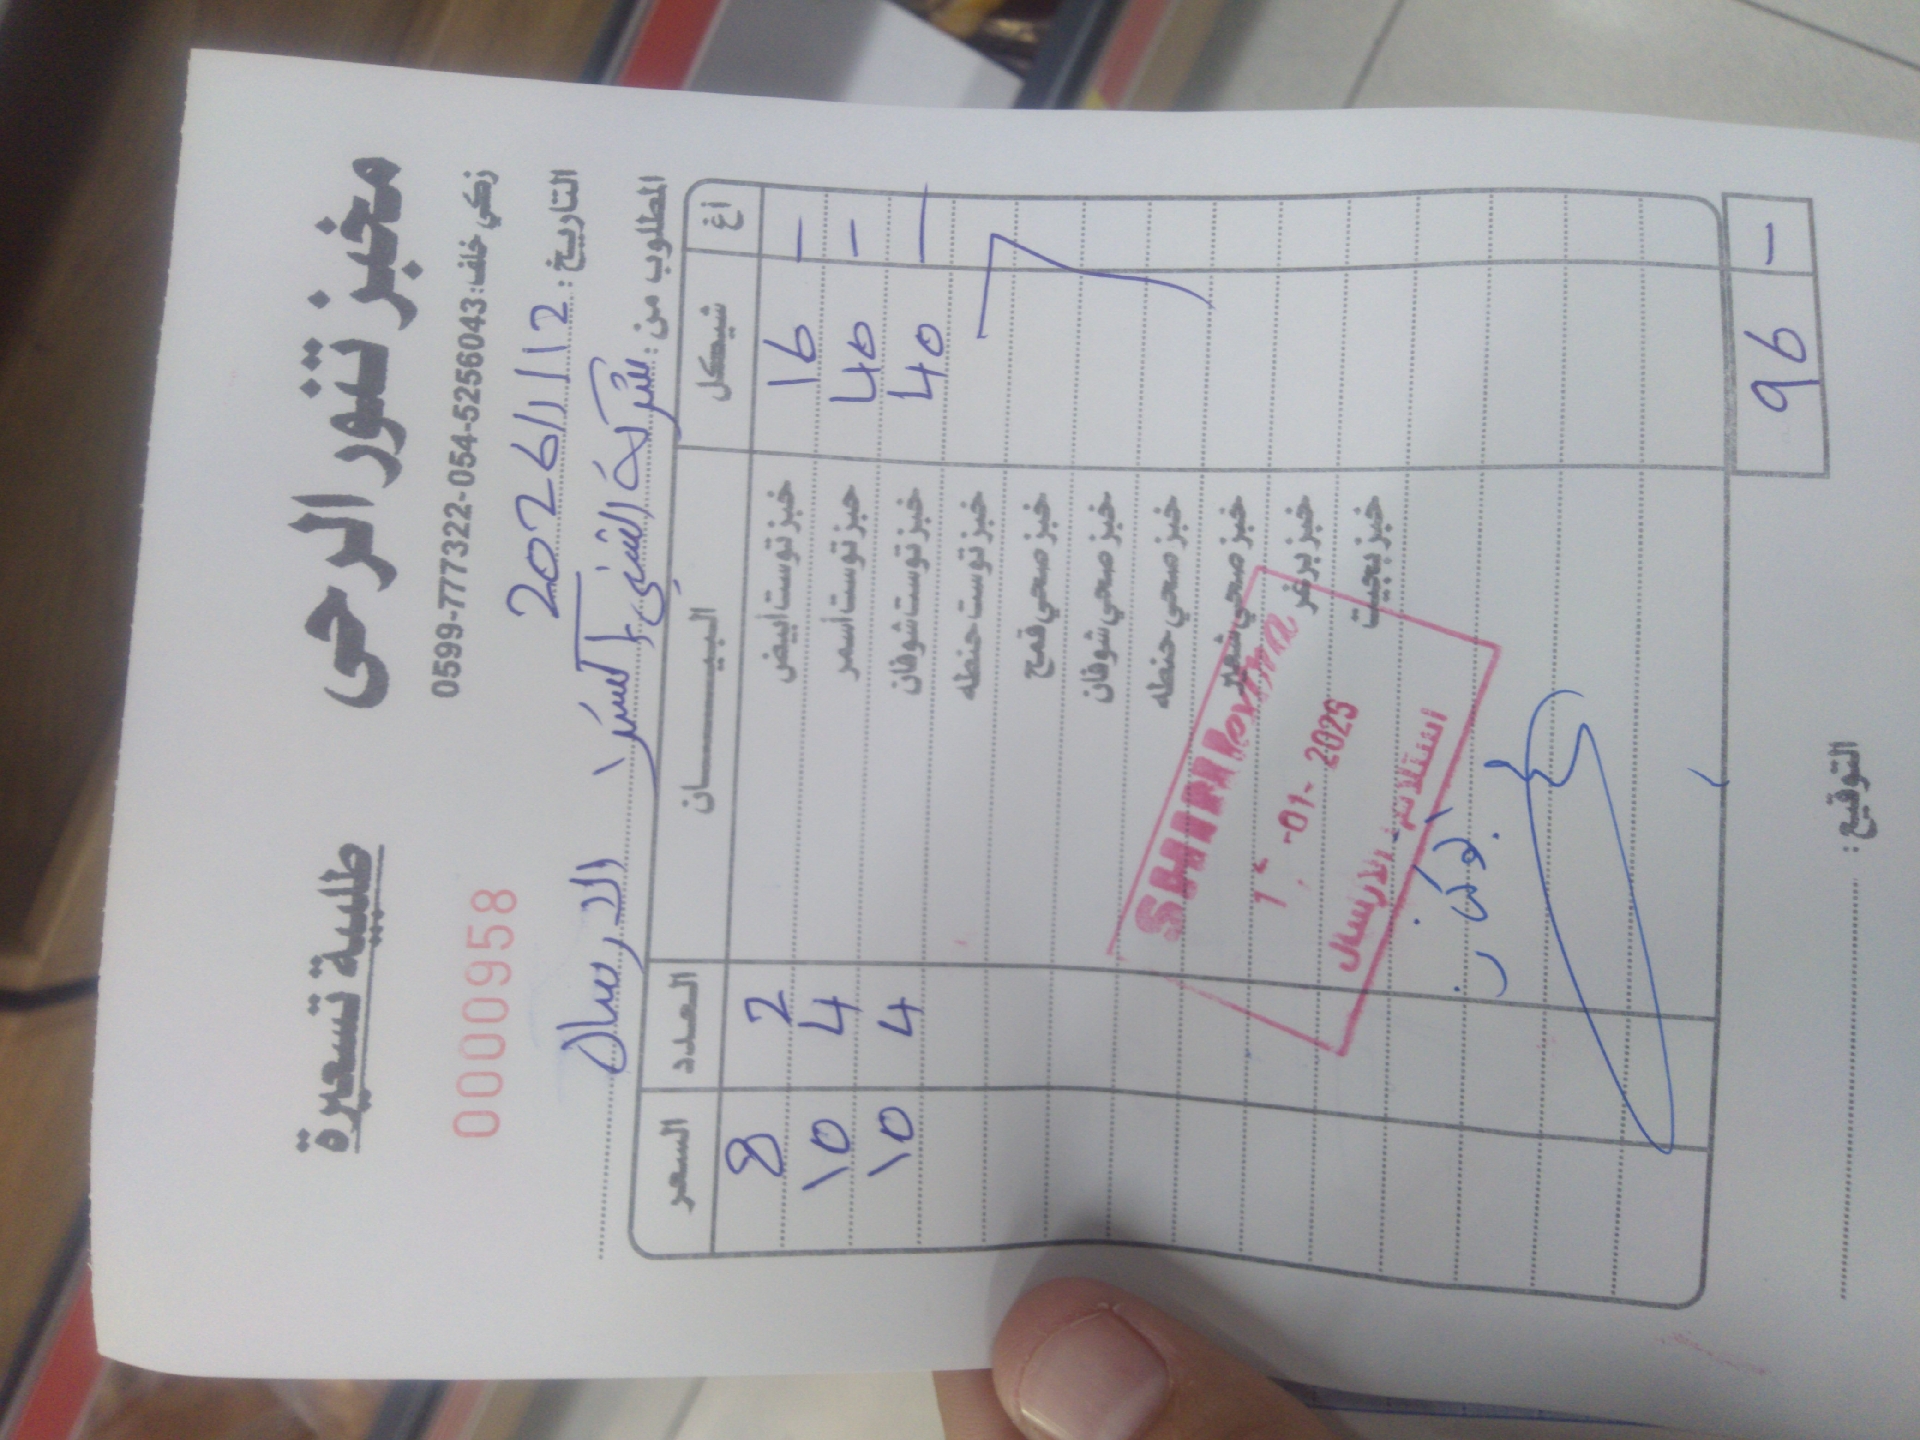 مخبز تنور الرحى
طلبية تسعيرة
زكي خلف: 054-5256043-0599-777322
0000958
التاريخ: 2026/1/12
المطلوب من: شركة الشني اكسترا
الارسال
السعر العدد البيـــــــان شيكل اغ
8 2 خبز توست ابيض 16 -
10 4 خبز توست أسمر 40 -
10 4 خبز توست شوفان 40 -
خبز توست حنطه
خبز صحي قمح
خبز صحي شوفان
خبز صحي حنطه
خبز صحي شعير
خبز برغر
خبز بجيت
SHINI extra
-01- 2025
استلام الارسال
96 -
التوقيع: